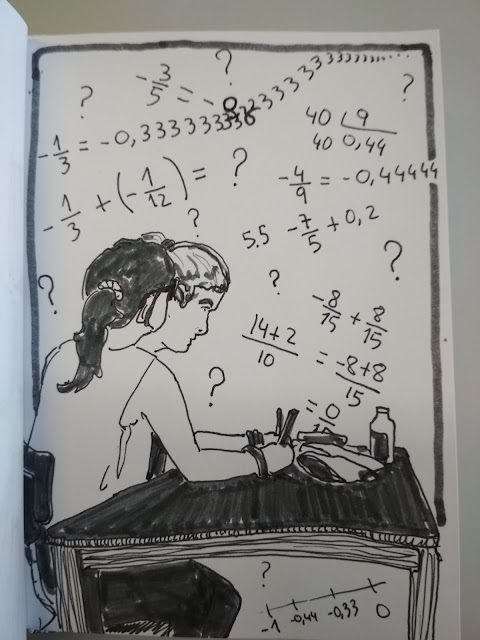 ?
-3/5 = -0,3233333333333...
?
?
-1/3 = -0,333333333
40 9
40 0,44
-1/3 + (-1/12) = ?
-4/9 = -0,44444
?
5.5 -7/5 + 0,2
?
?
?
-8/15 + 8/15
14+2/10
= -8+8/15
?
= 0
?
-1 -0,44 -0,33 0